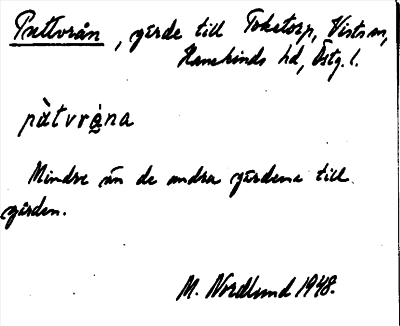 Puttvrån, gärde till Toketorp, Vists sn,
Hanekinds hd, Östg. l.
pὰtvrå̀na
Mindre än de andra gärdena till
gården.
M. Nordlund 1948.